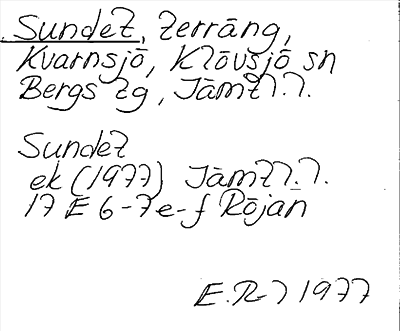 Sundet, terräng,
Kvarnsjö, Klövsjö sn
Bergs tg, Jämtl.l.
Sundet
ek (1977) Jämtl.l.
17 E 6-7 e-f Röjan
1977